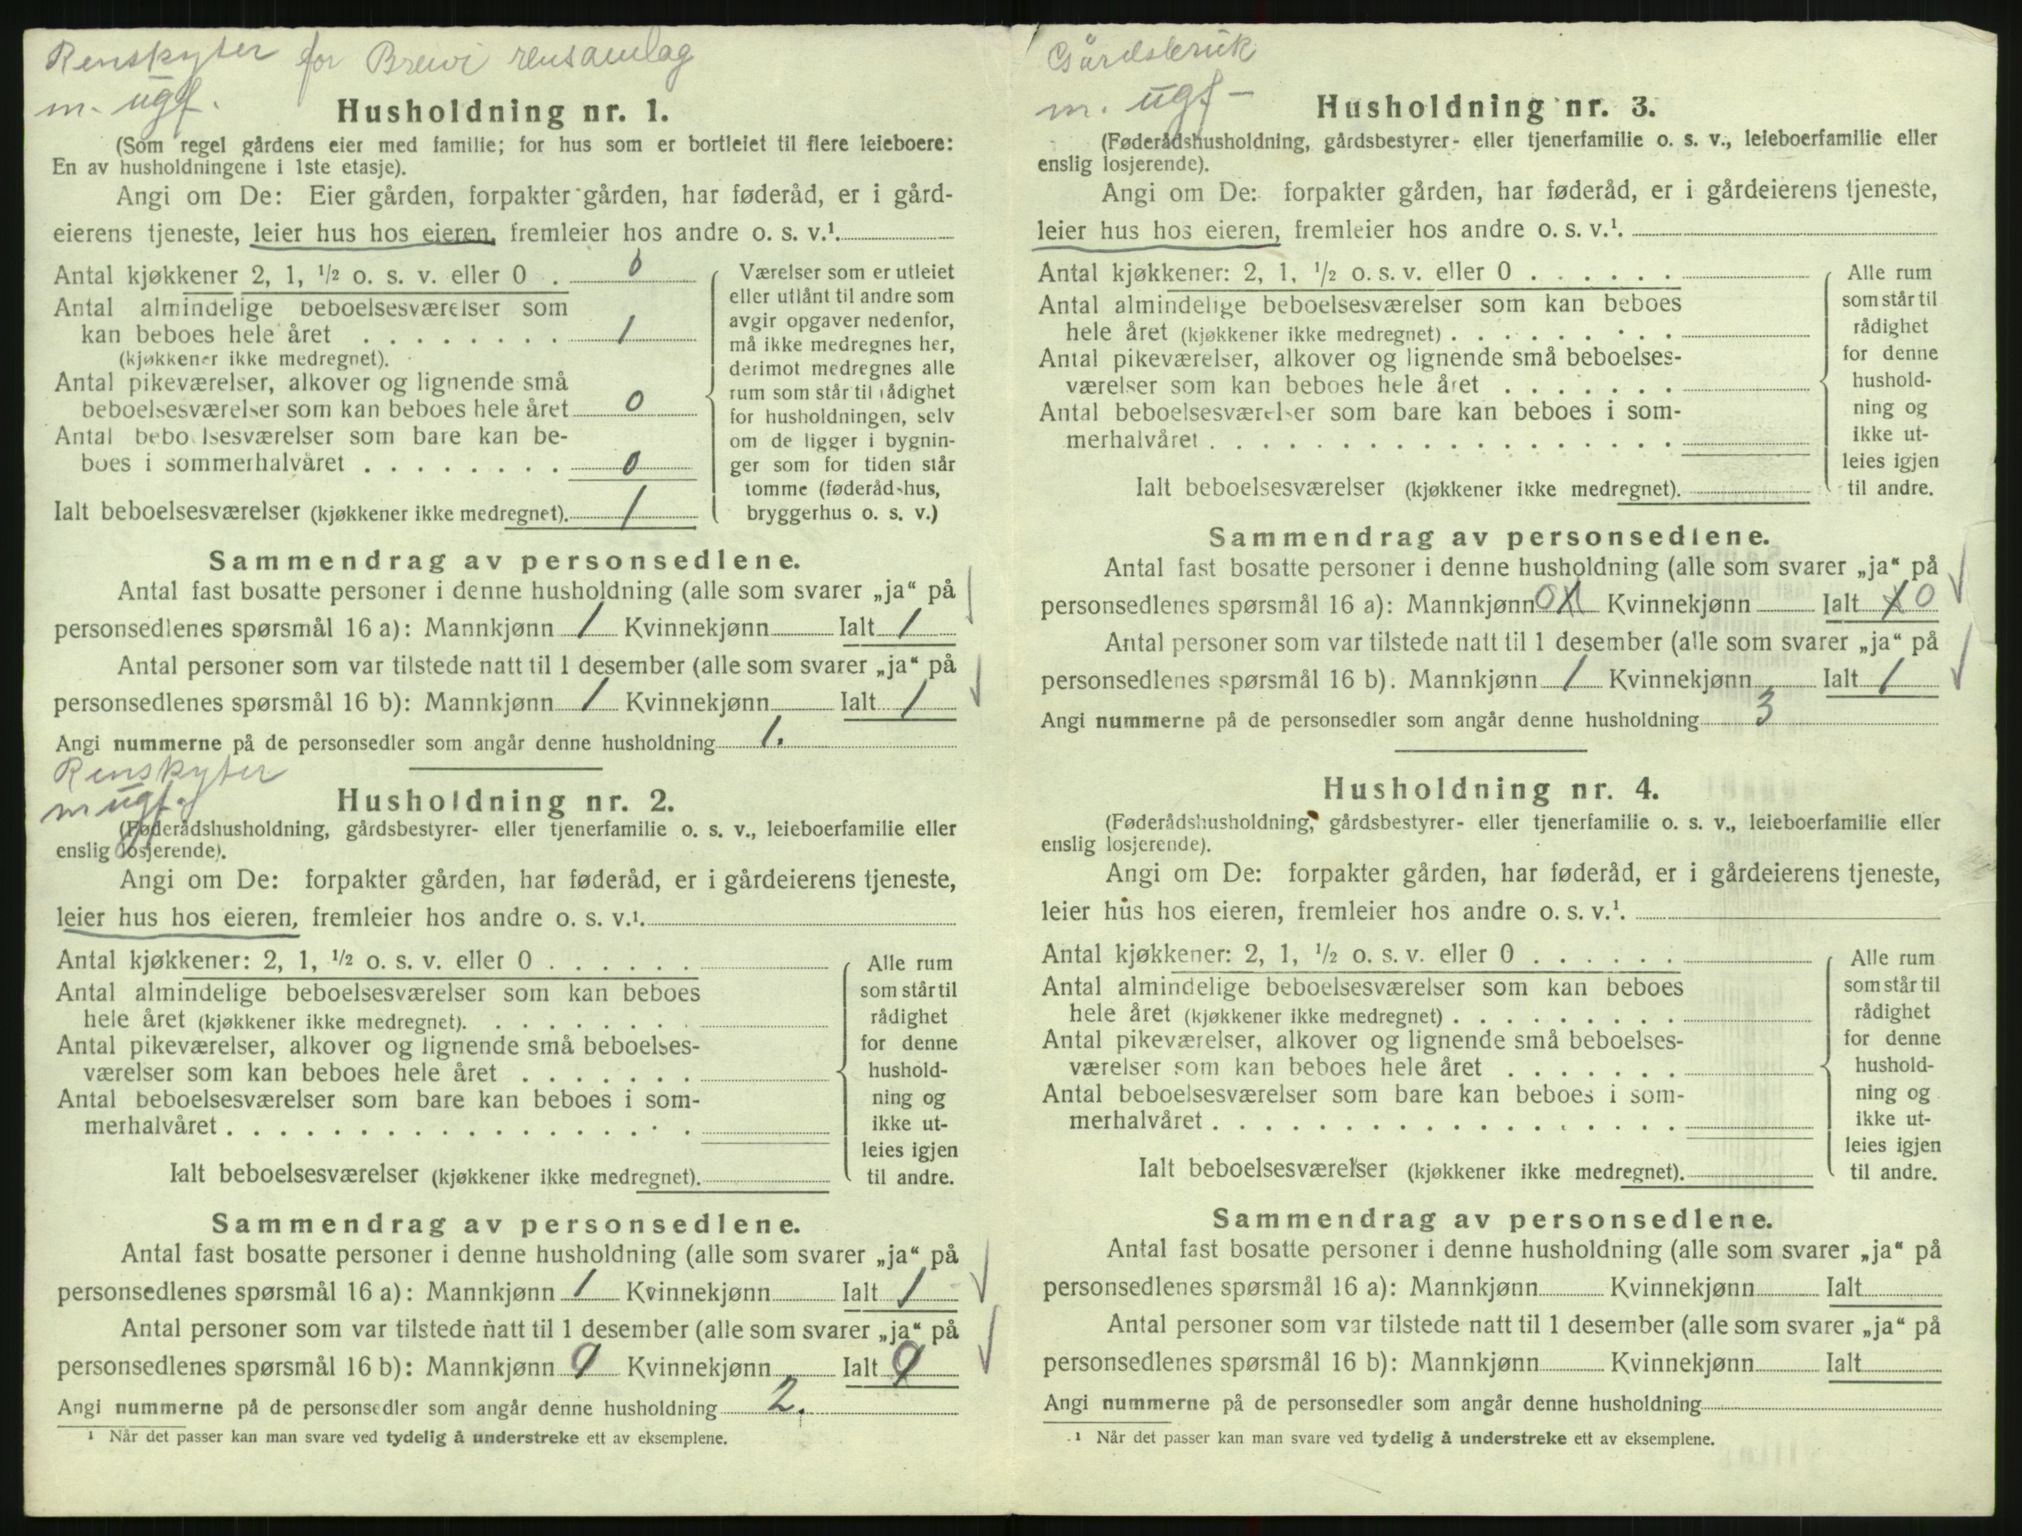 Renskyter for Breivi rensamlag
m. ugf.
Husholdning nr. 1.
(Som regel gårdens eier med familie; for hus som er bortleiet til flere leieboere:
En av husholdningene i 1ste etasje).
Angi om De: Eier gården, forpakter gården, har føderåd, er i gård-
eierens tjeneste, leier hus hos eieren, fremleier hos andre o. s. v.¹.
Antal kjøkkener 2, 1, ½ o. s. v. eller 0 . 0
Antal almindelige beboelsesværelser som
kan beboes hele året . . . . . . . . 1
(kjøkkener ikke medregnet).
Antal pikeværelser, alkover og lignende små
beboelsesværelser som kan beboes hele året 0
Antal beboelsesværelser som bare kan be-
boes i sommerhalvåret . . . . . . . . 0
Ialt beboelsesværelser (kjøkkener ikke medregnet). 1
Værelser som er utleiet
eller utlånt til andre som
avgir opgaver nedenfor,
må ikke medregnes her,
derimot medregnes alle
rum som står til rådighet
for husholdningen, selv
om de ligger i bygnin-
ger som for tiden står
tomme (føderådshus,
bryggerhus o. s. v.)
Sammendrag av personsedlene.
Antal fast bosatte personer i denne husholdning (alle som svarer „ja“ på
personsedlenes spørsmål 16 a): Mannkjønn 1 Kvinnekjønn Ialt 1
Antal personer som var tilstede natt til 1 desember (alle som svarer „ja“ på
personsedlenes spørsmål 16 b): Mannkjønn 1 Kvinnekjønn Ialt 1
Angi nummerne på de personsedler som angår denne husholdning 1.
Renskyter
m ugf.
Husholdning nr. 2.
(Føderådshusholdning, gårdsbestyrer- eller tjenerfamilie o. s. v., leieboerfamilie eller
enslig losjerende).
Angi om De: forpakter gården, har føderåd, er i gårdeierens tjeneste,
leier hus hos eieren, fremleier hos andre o. s. v.¹.
Antal kjøkkener: 2, 1, ½ o. s. v. eller 0 . . . . . .
Antal almindelige beboelsesværelser som kan beboes
hele året (kjøkkener ikke medregnet). . . . . . . . .
Antal pikeværelser, alkover og lignende små beboelses-
værelser som kan beboes hele året . . . . . . .
Antal beboelsesværelser som bare kan beboes i som-
merhalvåret . . . . . . . . . . . . . . . . . .
Ialt beboelsesværelser (kjøkkener ikke medregnet).
Alle rum
som står til
rådighet
for denne
hushold-
ning og
ikke ut-
leies igjen
til andre.
Sammendrag av personsedlene.
Antal fast bosatte personer i denne husholdning (alle som svarer „ja“ på
personsedlenes spørsmål 16 a): Mannkjønn 1 Kvinnekjønn Ialt 1
Antal personer som var tilstede natt til 1 desember (alle som svarer „ja“ på
personsedlenes spørsmål 16 b): Mannkjønn 0 Kvinnekjønn Ialt 0
Angi nummerne på de personsedler som angår denne husholdning 2.
¹ Når det passer kan man svare ved tydelig å understreke ett av eksemplene.
Gårdsbruk
m. ugf –
Husholdning nr. 3.
(Føderådshusholdning, gårdsbestyrer- eller tjenerfamilie o. s. v., leieboerfamilie eller
enslig losjerende).
Angi om De: forpakter gården, har føderåd, er i gårdeierens tjeneste,
leier hus hos eieren, fremleier hos andre o. s. v.¹.
Antal kjøkkener: 2, 1, ½ o. s. v. eller 0 . . . . . .
Antal almindelige beboelsesværelser som kan beboes
hele året (kjøkkener ikke medregnet) . . . . . . . . .
Antal pikeværelser, alkover og lignende små beboelses-
værelser som kan beboes hele året . . . . . . .
Antal beboelsesværelser som bare kan beboes i som-
merhalvåret . . . . . . . . . . . . . . . . . .
Ialt beboelsesværelser (kjøkkener ikke medregnet).
Alle rum
som står til
rådighet
for denne
hushold-
ning og
ikke ut-
leies igjen
til andre.
Sammendrag av personsedlene.
Antal fast bosatte personer i denne husholdning (alle som svarer „ja“ på
personsedlenes spørsmål 16 a): Mannkjønn 0 1 Kvinnekjønn Ialt 1 0
Antal personer som var tilstede natt til 1 desember (alle som svarer „ja“ på
personsedlenes spørsmål 16 b). Mannkjønn 1 Kvinnekjønn Ialt 1
Angi nummerne på de personsedler som angår denne husholdning 3
Husholdning nr. 4.
(Føderådshusholdning, gårdsbestyrer- eller tjenerfamilie o. s. v., leieboerfamilie eller
enslig losjerende).
Angi om De: forpakter gården, har føderåd, er i gårdeierens tjeneste,
leier hus hos eieren, fremleier hos andre o. s. v.¹.
Antal kjøkkener: 2, 1, ½ o. s. v. eller 0 . . . . . .
Antal almindelige beboelsesværelser som kan beboes
hele året (kjøkkener ikke medregnet) . . . . . . . . .
Antal pikeværelser, alkover og lignende små beboelses-
værelser som kan beboes hele året . . . . . . .
Antal beboelsesværelser som bare kan beboes i som-
merhalvåret . . . . . . . . . . . . . . . . . .
Ialt beboelsesværelser (kjøkkener ikke medregnet).
Alle rum
som står til
rådighet
for denne
hushold-
ning og
ikke ut-
leies igjen
til andre.
Sammendrag av personsedlene.
Antal fast bosatte personer i denne husholdning (alle som svarer „ja“ på
personsedlenes spørsmål 16 a): Mannkjønn Kvinnekjønn Ialt
Antal personer som var tilstede natt til 1 desember (alle som svarer „ja“ på
personsedlenes spørsmål 16 b): Mannkjønn Kvinnekjønn Ialt
Angi nummerne på de personsedler som angår denne husholdning
¹ Når det passer kan man svare ved tydelig å understreke ett av eksemplene.